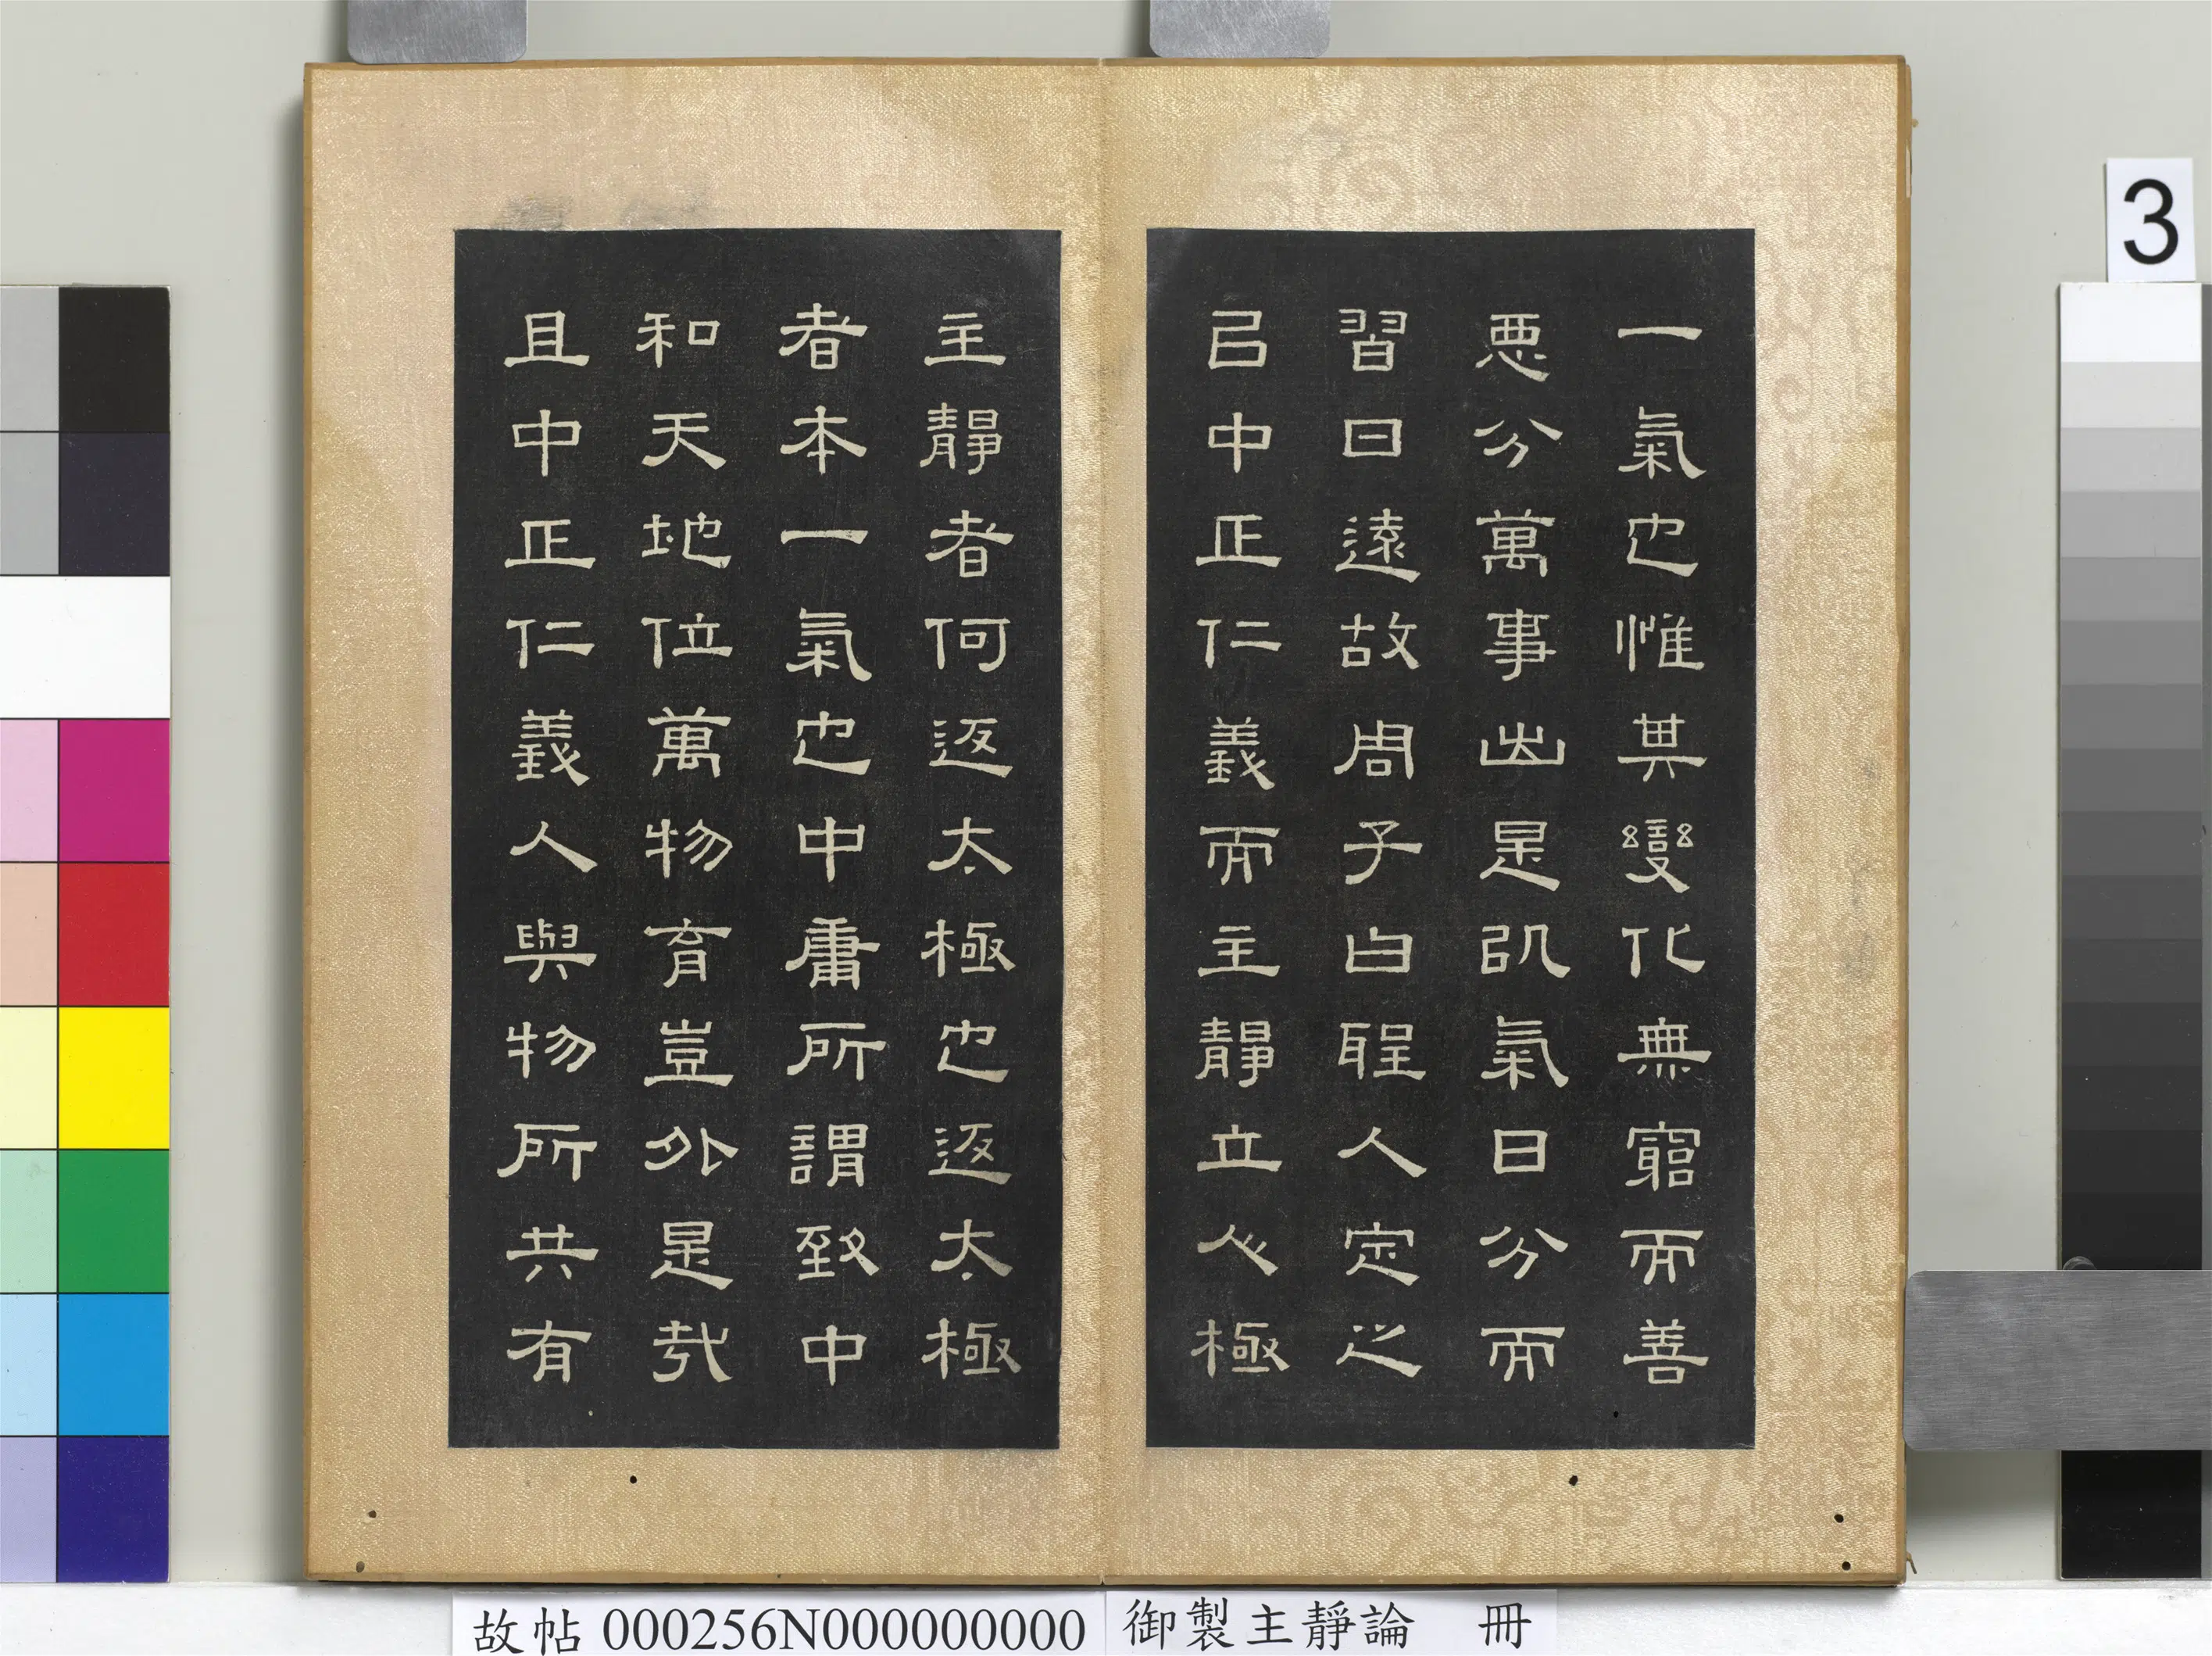 一氣也惟其變化無窮而善
惡分萬事出是以氣日分而
習日遠故周子曰聖人定之
以中正仁義而主靜立人極
主靜者何返太極也返太極
者本一氣也中庸所謂致中
和天地位萬物育豈外是哉
且中正仁義人與物所共有
3
故帖 000256N000000000
御製主靜論 冊